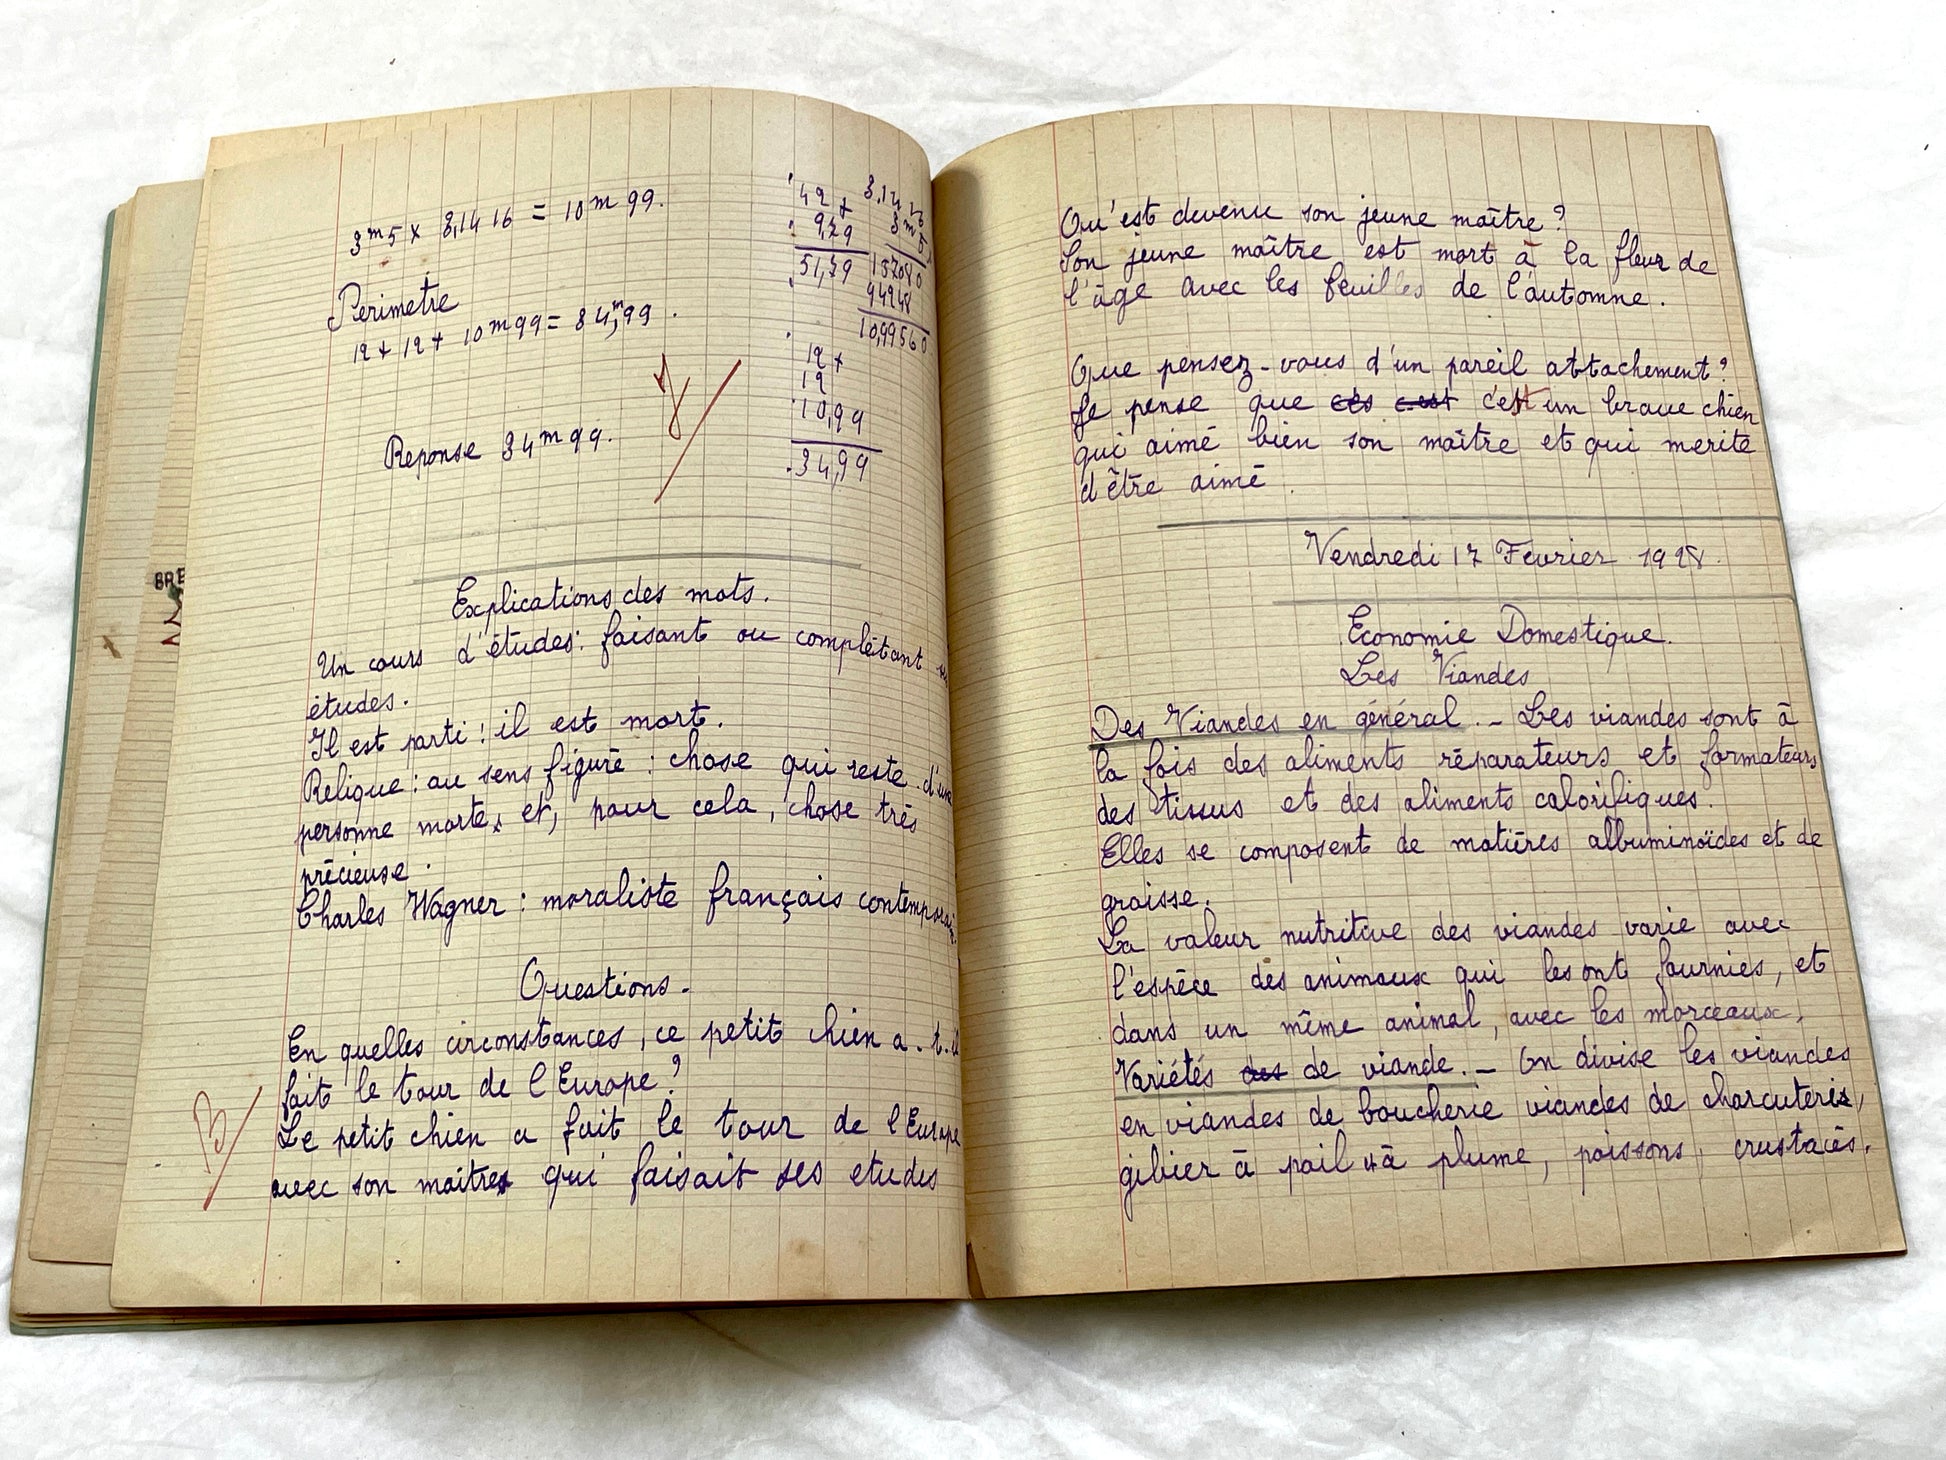 BRE
3m5 x 3,1416 = 10m99.
Périmetre
12 + 12 + 10m99 = 34,m99.
Reponse 34m99.
42 +
9,79
51,79
3.1416
3m5
157080
94248
10,99560
12 +
12
10,99
34,99
Explications des mots.
Un cours d'études: faisant ou complétant ses
études.
Il est parti : il est mort.
Relique : au sens figuré : chose qui reste d'une
personne morte, et, pour cela, chose très
précieuse.
Charles Wagner : moraliste français contemporain.
Questions.
En quelles circonstances, ce petit chien a-t-il
fait le tour de l'Europe ?
B
Le petit chien a fait le tour de l'Europe
avec son maitre qui faisait ses etudes
Qu'est devenu son jeune maître ?
Son jeune maître est mort à la fleur de
l'âge avec les feuilles de l'automne.
Que pensez-vous d'un pareil attachement ?
Je pense que cés c.est c'est un brave chien
qui aimé bien son maître et qui merite
d'être aimé.
Vendredi 17 Fevrier 1928.
Economie Domestique.
Les Viandes
Des Viandes en général. - Les viandes sont à
la fois des aliments réparateurs et formateurs
des tissus et des aliments calorifiques.
Elles se composent de matières albuminoïdes et de
graisse.
La valeur nutritive des viandes varie avec
l'espèce des animaux qui les ont fournies, et
dans un même animal, avec les morceaux.
Variétés des de viande. - On divise les viandes
en viandes de boucherie viandes de charcuterie,
gibier à poil à plume, poissons, crustacés.